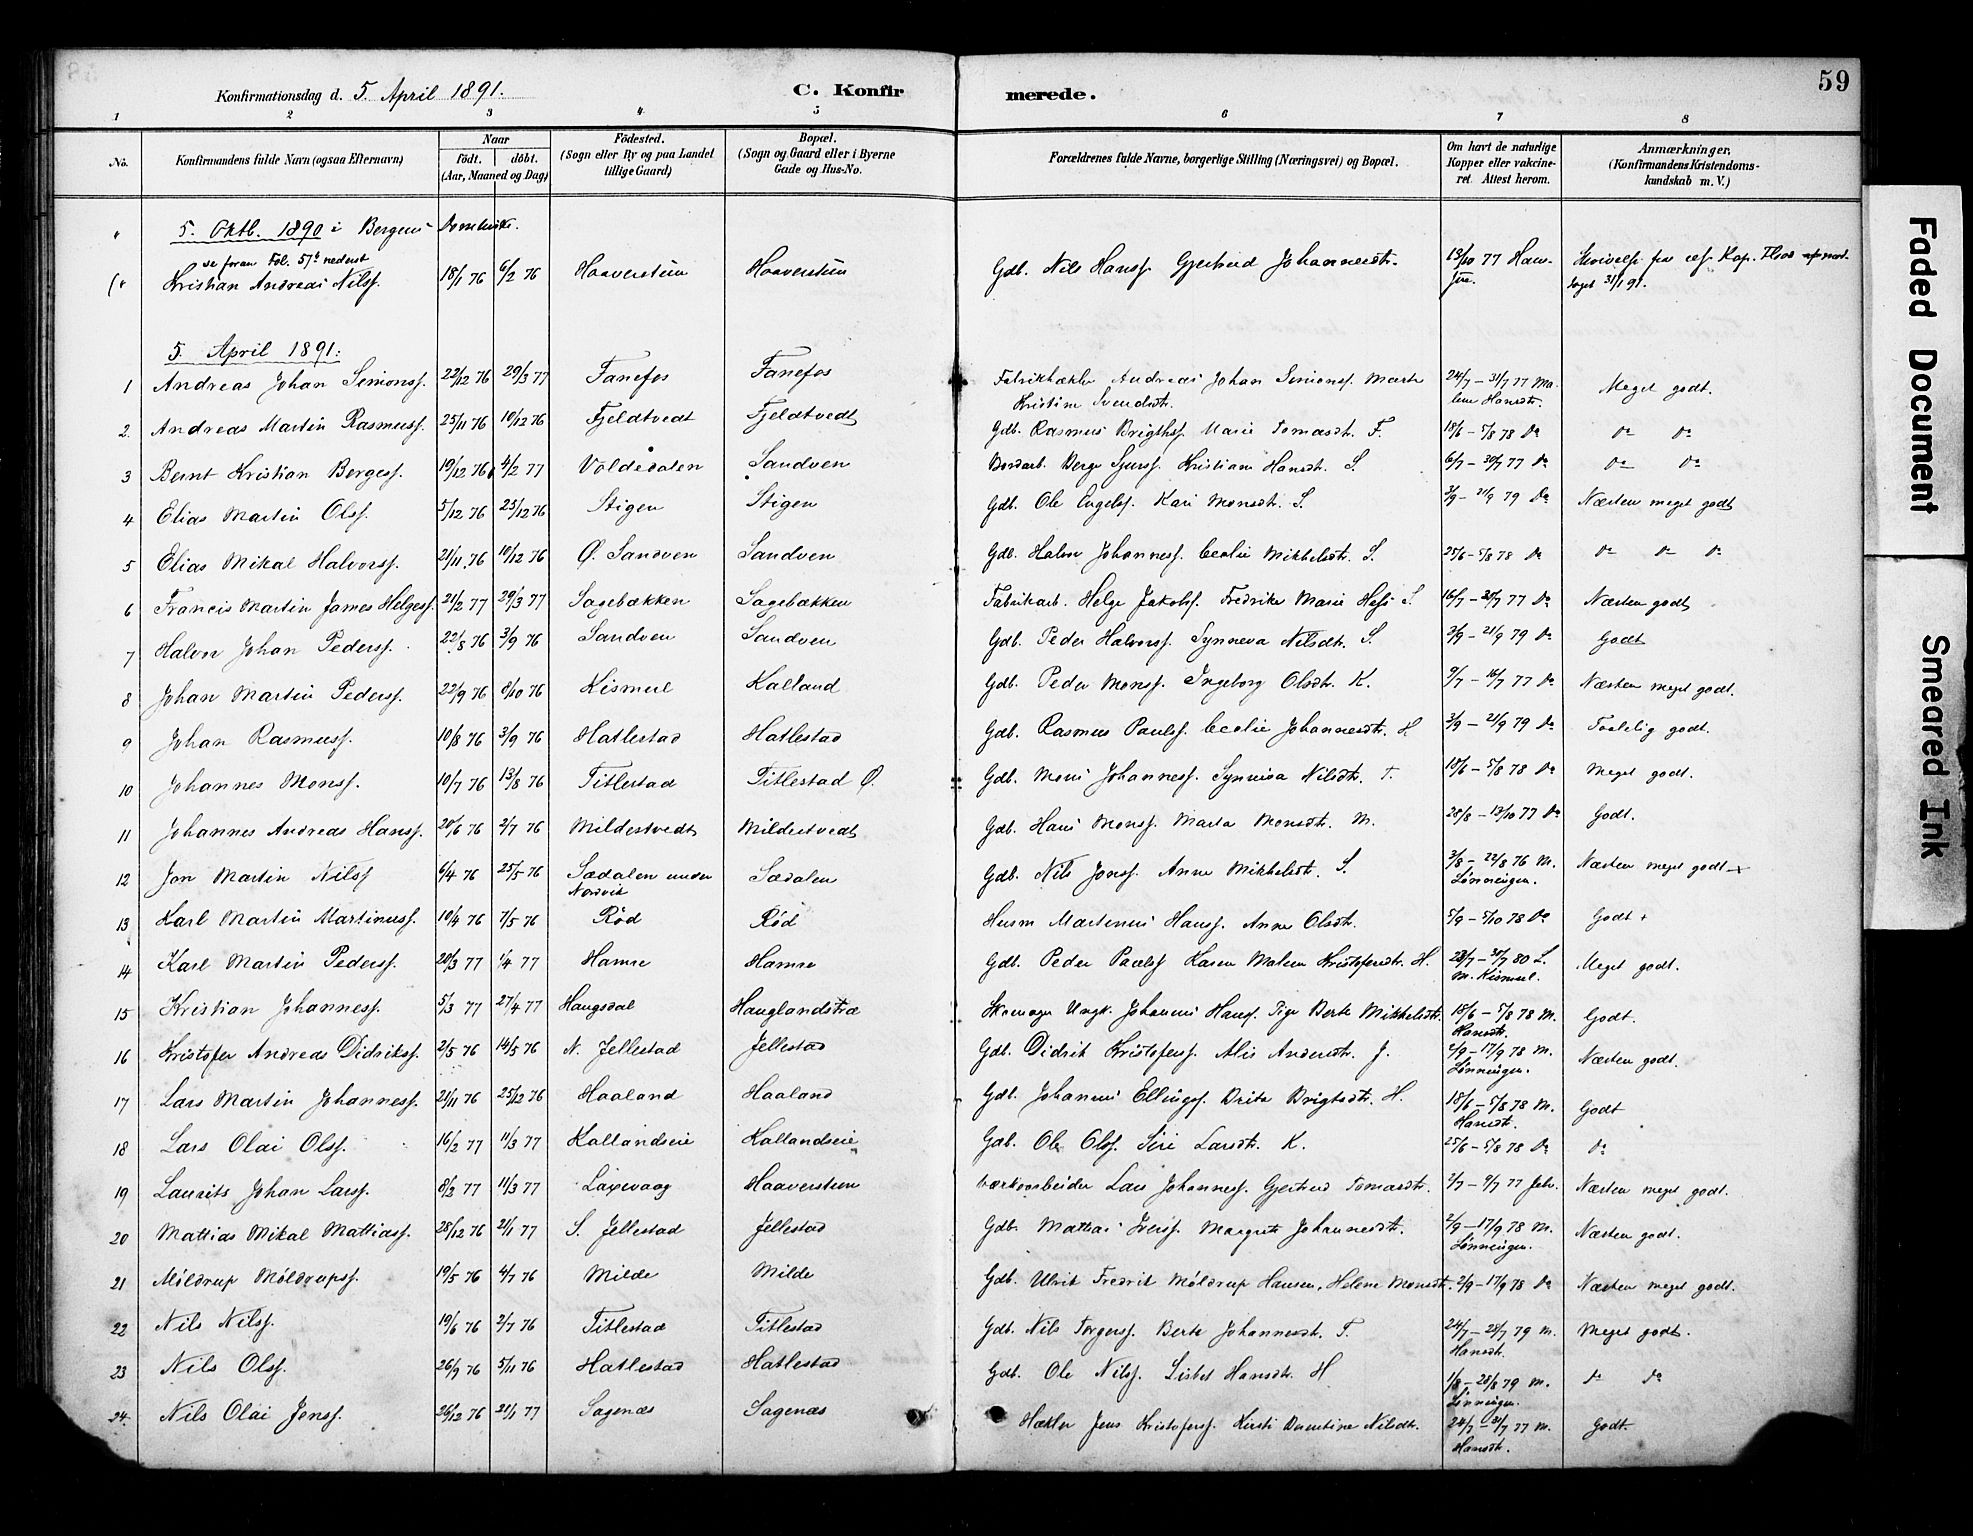 Konfirmationsdag d. 5. April 1891. C. Konfirmerede. 59
1 2 3 4 5 6 7 8
No. Konfirmandens fulde Navn (ogsaa Efternavn) Naar födt. döbt. (Aar, Maaned og Dag) Födested. (Sogn eller By og paa Landet tillige Gaard) Bopæl. (Sogn og Gaard eller i Byerne Gade og Hus-No. Forældrenes fulde Navne, borgerlige Stilling (Næringsvei) og Bopæl. Om havt de naturlige Kopper eller vakcineret. Attest herom. Anmærkninger, (Konfirmandens Kristendomskundskab m. V.)
" 5. Oktb. 1890 i Bergens Domkirke.
se foran Fol. 57b nederst
Kristian Andreas Nilss. 18/1 76 6/2 76 Haaverstein Haaverstein Gdb. Nils Hanss. Gjertrud Johannesdtr. 19/10 77
31/1 91.
5. April 1891:
1 Andreas Johan Simonss. 22/12 76 29/3 77 Fanefos Fanefos Andreas Johan Simonss. Marte Kristine Svendsdtr. 24/7 – 31/7 77 Malene Hansdtr. Meget godt.
2. Andreas Martin Rasmuss. 25/11 76 10/12 76 Fjeldtvedt Fjeldtvedt Gdb. Rasmus Brigthss. Marie Tomasdtr. F. 18/6 – 5/8 78 Do Do Do
3 Bernt Kristian Bergess. 19/12 76 4/2 77 Völdedalen Sandven Berge Sjurss. Kristiane Hansdtr. S. 6/7 – 30/7 77 Do Do Do
4 Elias Martin Olss. 5/12 76 25/12 76 Stigen Stigen Gdb. Ole Engelss. Kari Monsdtr. S. 3/9 – 21/9 79 Do Næsten meget godt
5 Elias Mikal Halvorss. 21/11 76 10/12 76 Ø. Sandven Sandven Gdb. Halvor Johanness. Cecilie Mikkelsdtr. S. 25/6 – 5/8 78 Do Do Do Do
6 Francis Martin James Helgess. 21/2 77 29/3 77 Sagebækken Sagebækken Fabrikarb. Helge Jakobss. Fredrikke Marie S. 16/7 – 30/7 77 Do Næsten godt
7 Halvor Johan Pederss. 22/8 76 3/9 76 Sandven Sandven Gdb. Peder Halvorss. Synneva Nilsdtr. S. 3/9 – 21/9 79 Do Godt
8 Johan Martin Pederss. 22/9 76 8/10 76 Kismul Kalland Gdb. Peder Monss. Ingeborg Olsdtr. K. 9/7 – 16/7 77 Do Næsten meget godt.
9 Johan Rasmuss. 10/8 76 3/9 76 Hatlestad Hatlestad Gdb. Rasmus Paulss. Cecilie Johannesdtr. H. 3/9 – 21/9 79 Do Taalelig godt.
10 Johannes Monss. 10/7 76 13/8 76 Titlestad Titlestad Ø. Gdb. Mons Johanness. Synneva Nilsdtr. T. 18/6 – 5/8 78 Do Meget godt.
11 Johannes Andreas Hanss. 20/6 76 2/7 76 Mildestvedt Mildestvedt Gdb. Hans Monss. Marta Monsdtr. M. 28/8 – 13/10 77 Do Godt.
12 Jon Martin Nilss 6/4 76 25/5 76 Sædalen under Nordvik Sædalen Gdb. Nils Jonss. Anne Mikkelsdtr. S. 3/8 – 22/8 76 M. Lønningen. Næsten meget godt
13 Karl Martin Martinuss. 10/4 76 7/5 76 Rød Rød Husm Martinus Hanss. Anne Olsdtr. 5/9 – 5/10 78 Do Godt
14 Karl Martin Pederss. 20/3 77 1/4 77 Hamre Hamre Gdb. Peder Paulss Karen Malene Kristofersdtr. H. 28/7 – 31/7 80 L. M. Kismul. Meget godt.
15 Kristian Johanness. 5/3 77 27/4 77 Haugsdal Hauglandstræ Skomager Ungk. Johannes Hanss. Pige Berte Mikkelsdtr. 18/6 – 5/8 78 M. Hansdtr. Godt.
16 Kristofer Andreas Didrikss. 2/5 76 14/5 76 N. Jellestad Jellestad Gdb. Didrik Kristoferss. Alis Andersdtr. J. 2/9 – 17/9 78 M. Lønningen. Næsten godt.
17 Lars Martin Johanness. 21/11 76 25/12 76 Haaland Haaland Gdb. Johannes Ellingss. Brita Brigtsdtr. H. 18/6 – 5/8 78 M. Hansdt. Godt
18 Lars Olai Olss. 16/2 77 11/3 77 Kallandseie Kallandseie Gdb. Ole Olss. Siri Larsdtr. K. 25/6 – 5/8 78 Do Do
19 Laurits Johan Larss. 8/2 77 11/3 77 Laxevaag Haaverstein Værksarbeider Lars Johanness. Gjertrud Tomasdtr. 2/7 – 9/7 77 Næsten meget godt.
20 Mattias Mikal Mattiass. 28/12 76 21/1 77 S. Jellestad Jellestad Gdb. Mattias Iverss. Margrete Johannesdtr. 2/9 – 17/9 78 M. Lønningen. Næsten godt.
21 Möldrup Möldrupss. 19/5 76 4/7 76 Milde Milde Gdb. Ulrik Fredrik Möldrup Hansen, Helene Monsdtr. 2/9 – 17/9 78 Do Næsten meget godt.
22 Nils Nilss. 19/6 76 2/7 76 Titlestad Titlestad Gdb. Nils Torgerss. Berte Johannesdtr. T. 24/7 – 28/7 79 M. Hansdtr. Meget godt.
23 Nils Olss. 26/9 76 5/11 76 Hatlestad Hatlestad Gdb. Ole Nilss. Lisbet Hansdtr. H 1/8 – 28/8 79 M. Lønningen. Do Do
24. Nils Olai Jenss. 26/12 76 21/1 77 Sagenæs Sagenæs Hekler Jens Kristoferss. Kirsti Nilsdtr. 24/7 – 31/7 77 M. Hansdtr. Godt.
Faded Document
Smeared Ink